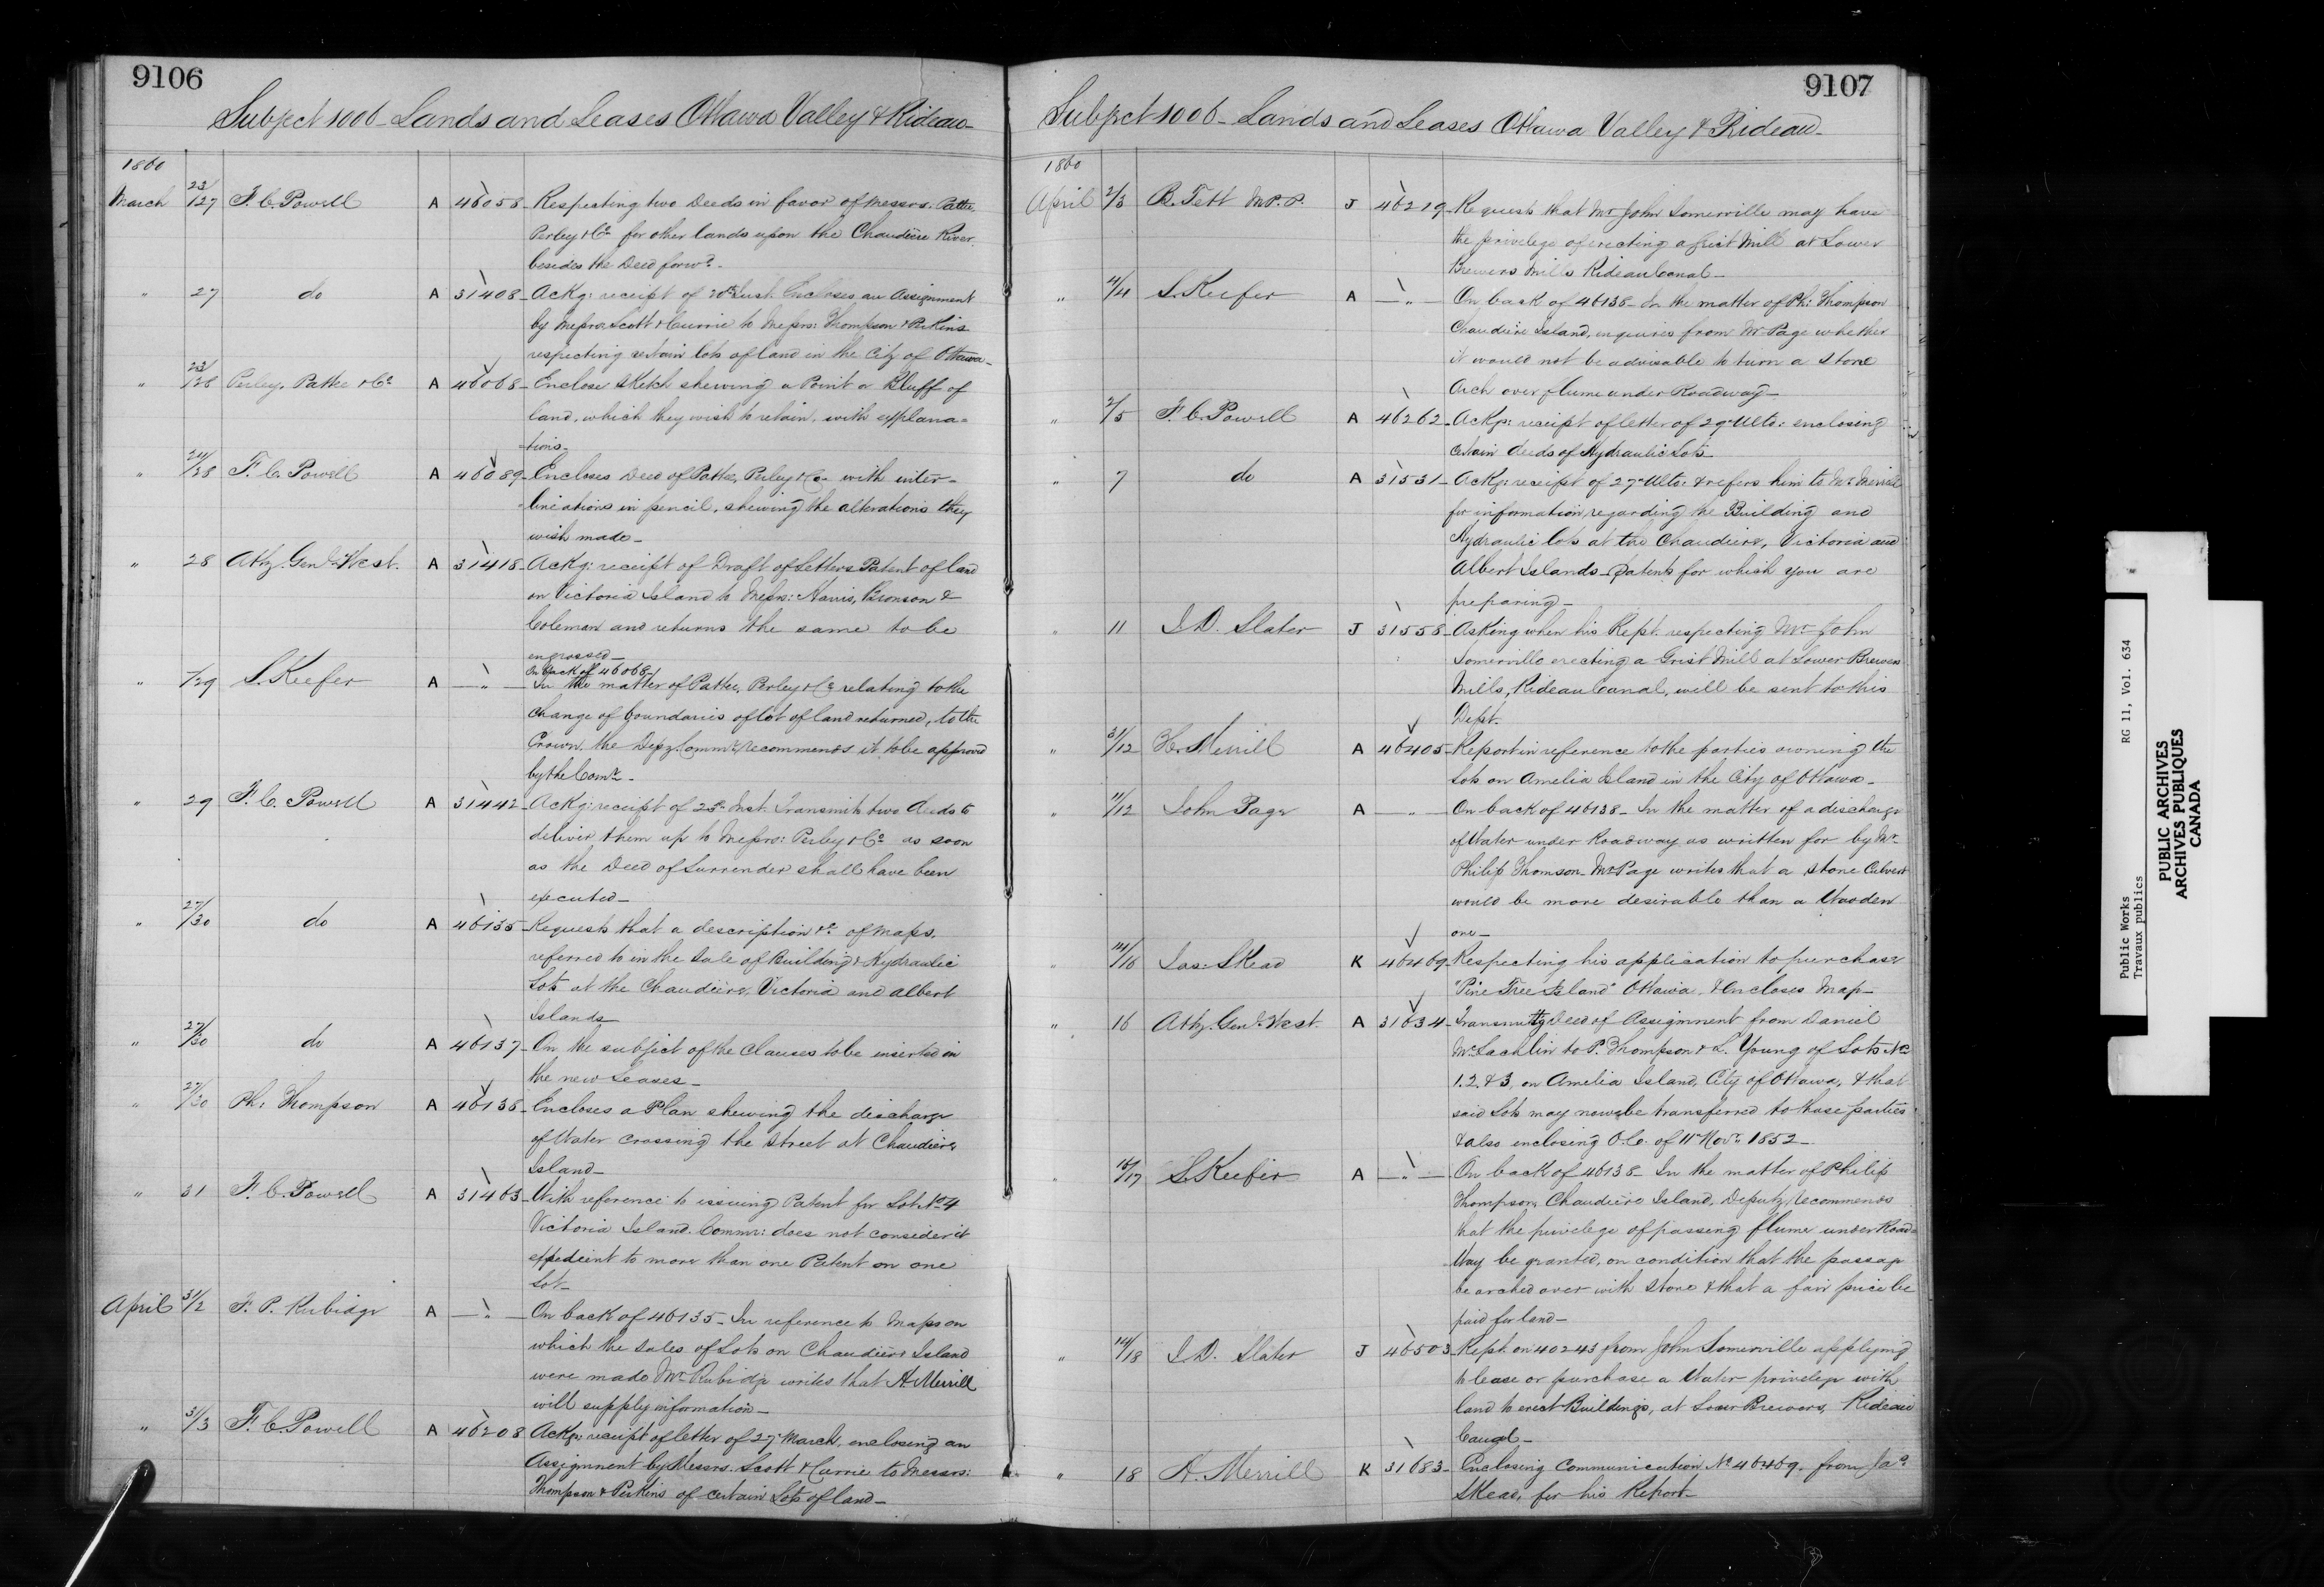 9106
Subject 1006 - Lands and Leases Ottawa Valley & Rideau -
1860
March 23/27 F. C. Powell A 46058 - Respecting two Deeds in favor of Messrs. Pattee
Perley & Co for other lands upon the Chaudière River,
besides the Deed forwd. -
" 27 do A 31408 - Ackg: receipt of 20th Inst. Encloses an Assignment
by Messrs Scott & Currie to Messrs: Thompson & Perkins
respecting certain lots of land in the City of Ottawa -
" 23/28 Perley, Pattee & Co A 46068 - Enclose Sketch shewing a Point or Bluff of
land, which they wish to retain, with explana=
=tions -
" 24/28 F. C. Powell A 46089 - Encloses Deed of Pattee, Perley & Co - with inter-
=lineations in pencil, shewing the alterations they
wish made -
" 28 Atty. Genl. West. A 31418 - Ackg: receipt of Draft of Letters Patent of land
on Victoria Island to Messrs: Harris, Bronson &
Coleman and returns the same to be
engrossed -
On back of 46068 /
" /29 S. Keefer A — " — In the matter of Pattee, Perley & Co relating to the
change of boundaries of lot of land returned, to the
Crown, the Depy. Commr. recommends it to be approved
by the Comr. -
" 29 F. C. Powell A 31442 - Ackg: receipt of 23d. Inst. Transmits two deeds to
deliver them up to Messrs: Perley & Co as soon
as the Deed of Surrender shall have been
executed -
" 27/30 do A 46135 - Requests that a description &c. of Maps,
referred to in the Sale of Building & Hydraulic
Lots at the Chaudière, Victoria and Albert
Islands -
" 27/30 do A 46137 - On the subject of the Clauses to be inserted in
the new Leases -
" 27/30 Ph: Thompson A 46138 - Encloses a Plan shewing the discharge
of Water crossing the street at Chaudière
Island -
" 31 F. C. Powell A 31463 - With reference to issuing Patent for Lot No 4
Victoria Island. Commr: does not consider it
expedient to more than one Patent on one
Lot -
April 31/2 F. P. Rubidge A — " — On back of 46135 - In reference to Maps on
which the sales of Lots on Chaudière Island
were made Mr. Rubidge writes that H. Merrill
will supply information -
" 31/3 F. C. Powell A 46208 Ackg: receipt of letter of 27 March, enclosing an
Assignment by Messrs. Scott & Currie to Messrs:
Thompson & Perkins of certain Lots of land -
9107
Subject 1006 - Lands and Leases Ottawa Valley & Rideau -
1860
April 2/3 B. Tett M.P.P. J 46219 - Requests that Mr John Somerville may have
the privilege of erecting a Grist Mill at Lower
Brewers Mills Rideau Canal -
" 4/4 S. Keefer A — " — On back of 46138 - In the matter of Ph: Thompson
Chaudière Island, enquires from Mr. Page whether
it would not be advisable to turn a stone
Arch over flume under Roadway -
" 2/5 F. C. Powell A 46262 - Ackg: receipt of letter of 29 Ulto: enclosing
certain deeds of Hydraulic Lots
" 7 do A 31531 - Ackg: receipt of 27 Ulto: & refers him to Mr. Merrill
for information, regarding the Building and
Hydraulic lots at the Chaudiere, Victoria and
Albert Islands - Patents for which you are
preparing -
" 11 J. D. Slater J 31558 - Asking when his Rept. respecting Mr John
Somerville erecting a Grist Mill at Lower Brewers
Mills, Rideau Canal, will be sent to this
Dept.
" 31/12 H. Merrill A 46405 - Report in reference to the parties owning the
Lots on Amelia Island in the City of Ottawa -
" 11/12 John Page A — " — On back of 46138 - In the matter of a discharge
of Water under Roadway as written for by Mr.
Philip Thomson - Mr Page writes that a stone Culvert
would be more desirable than a Wooden
one -
" 14/16 Jas: Skead K 46469 - Respecting his application to purchase
"Pine Tree Island" Ottawa, & Encloses Map -
" 16 Atty. Genl. West. A 31634 - Transmittg Deed of Assignment from Daniel
McLachlin to P. Thompson & L. Young of Lots Nos
1. 2. & 3, on Amelia Island, City of Ottawa, & that
said Lots may now be transferred to those parties
& also enclosing O.C. of 11 Novr. 1852 -
" 16/17 S. Keefer A — " — On back of 46138 - In the matter of Philip
Thompson, Chaudière Island, Deputy recommends
that the privilege of passing flume under Road=
Way be granted, on condition that the passage
be arched over with stone & that a fair price be
paid for land -
" 14/18 J. D. Slater J 46503 - Rept. on 40243 from John Somerville applying
to lease or purchase a Water privilege with
land to erect Buildings, at Lower Brewers, Rideau
Canal -
" 18 H. Merrill K 31683 - Enclosing Communication No 46469 - from Jas
Skead, for his Report -
Public Works RG 11, Vol. 634
Travaux publics
PUBLIC ARCHIVES
ARCHIVES PUBLIQUES
CANADA